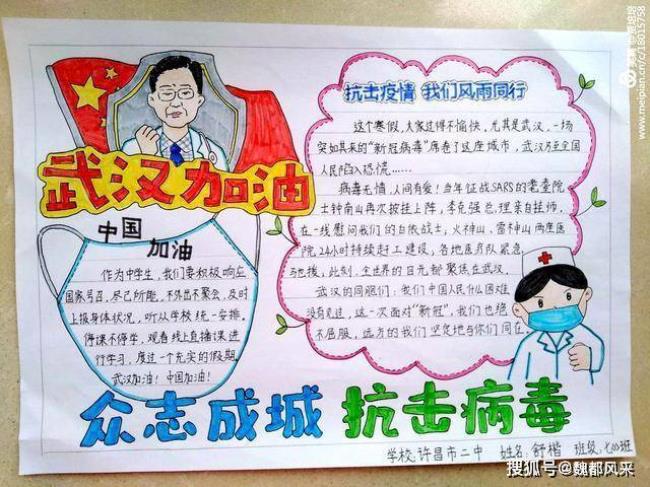 武汉加油
中国
加油
作为中学生，我们要积极响应
国家号召，尽己所能，不外出不聚会，及时
上报身体状况，听从学校统一安排。
停课不停学，观看线上直播课进
行学习，度过一个充实的假期。
武汉加油！中国加油！
抗击疫情 我们风雨同行
这个寒假，大家过得不愉快。尤其是武汉，一场
突如其来的“新冠病毒”席卷了这座城市，武汉乃至全国
人民陷入恐慌……
病毒无情，人间有爱！当年征战SARS的老
士钟南山再次披挂上阵，李克强总理亲自挂帅，
在一线慰问我们的白衣战士，火神山、雷神山两座医
院24小时持续赶工建设，各地医疗队紧急
驰援，此刻，全世界的目光都聚焦在武汉。
武汉的同胞们：我们中国人民什么困难
没有见过，这一次面对“新冠”，我们也绝
不屈服，远方的我们坚定地与你们同在。
众志成城 抗击病毒
学校：许昌市二中 姓名：舒楷 班级：七
搜狐号@魏都风采
www.meipian.cn/c/18015758